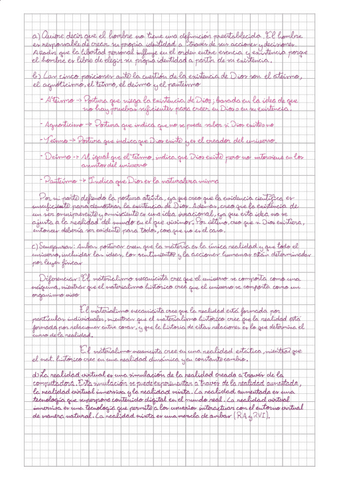 a) Quiere decir que el hombre no tiene una definición preestablecida. El hombre
es responsable de crear su propia identidad a través de sus acciones y decisiones.
Añaden que la libertad personal influye en el orden entre esencia y existencia porque
el hombre es libre de elegir su propia identidad a partir de su existencia.
b) Las cinco posiciones ante la cuestión de la existencia de Dios son el ateísmo,
el agnosticismo, el teísmo, el deísmo y el panteísmo
- Ateísmo → Postura que niega la existencia de Dios, basada en la idea de que
no hay pruebas suficientes para creer en Dios o en su existencia.
- Agnosticismo → Postura que indica que no se puede saber si Dios existe o no
- Teísmo → Postura que indica que Dios existe y es el creador del universo.
- Deísmo → Al igual que el teísmo, indica que Dios existe pero no interviene en los
asuntos del universo
- Panteísmo → Indica que Dios es la naturaleza misma
Por mi parte defiendo la postura atea, ya que creo que la evidencia científica es
insuficiente para demostrar la existencia de Dios. Además creo que la existencia de
un ser omnipotente y omnisciente es una idea irracional, ya que esta idea no se
ajusta a la realidad del mundo en el que vivimos. Por último creo que si Dios existiera,
entonces debería ser evidente para todos, cosa que no es el caso.
c) Semejanzas: Ambas posturas creen que la materia es la única realidad y que todo el
universo, incluidas las ideas, los sentimientos y las acciones humanas están determinadas
por leyes físicas
Diferencias: El materialismo mecanicista cree que el universo se comporta como una
máquina, mientras que el materialismo histórico cree que el universo se comporta como un
organismo vivo
El materialismo mecanicista cree que la realidad está formada por
partículas individuales, mientras que el materialismo histórico cree que la realidad está
formada por relaciones entre cosas, y que la historia de estas relaciones es lo que determina el
curso de la realidad.
El materialismo mecanicista cree en una realidad estática, mientras que
el mat. histórico cree en una realidad dinámica y en constante cambio.
d) La realidad virtual es una simulación de la realidad creada a través de la
computadora. Esta simulación se puede experimentar a través de la realidad aumentada,
la realidad virtual inmersiva y la realidad mixta. La realidad aumentada es una
tecnología que superpone contenido digital en el mundo real. La realidad virtual
inmersiva es una tecnología que permite a los usuarios interactuar con el entorno virtual
de manera natural. La realidad mixta es una mezcla de ambas (RA y RVI).